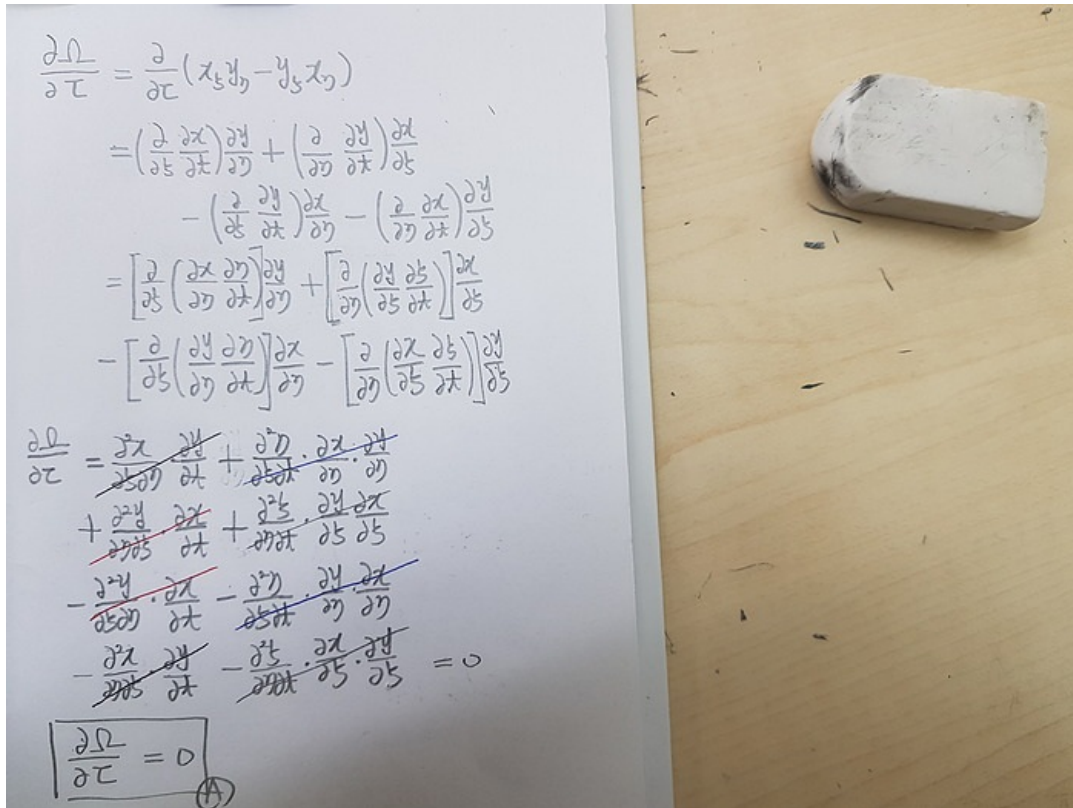 ∂Ω/∂τ = ∂/∂τ (x_ξ y_η − y_ξ x_η)
= (∂/∂ξ ∂x/∂t) ∂y/∂η + (∂/∂η ∂y/∂t) ∂x/∂ξ
− (∂/∂ξ ∂y/∂t) ∂x/∂η − (∂/∂η ∂x/∂t) ∂y/∂ξ
= [∂/∂ξ (∂x/∂η ∂η/∂t)] ∂y/∂η + [∂/∂η (∂y/∂ξ ∂ξ/∂t)] ∂x/∂ξ
− [∂/∂ξ (∂y/∂η ∂η/∂t)] ∂x/∂η − [∂/∂η (∂x/∂ξ ∂ξ/∂t)] ∂y/∂ξ
∂Ω/∂τ = ∂²x/∂ξ∂η · ∂y/∂t + ∂²η/∂ξ∂t · ∂x/∂η · ∂y/∂η
+ ∂²y/∂η∂ξ · ∂x/∂t + ∂²ξ/∂η∂t · ∂y/∂ξ ∂x/∂ξ
− ∂²y/∂ξ∂η · ∂x/∂t − ∂²η/∂ξ∂t · ∂y/∂η · ∂x/∂η
− ∂²x/∂η∂ξ · ∂y/∂t − ∂²ξ/∂η∂t · ∂x/∂ξ · ∂y/∂ξ = 0
∂Ω/∂τ = 0
(A)